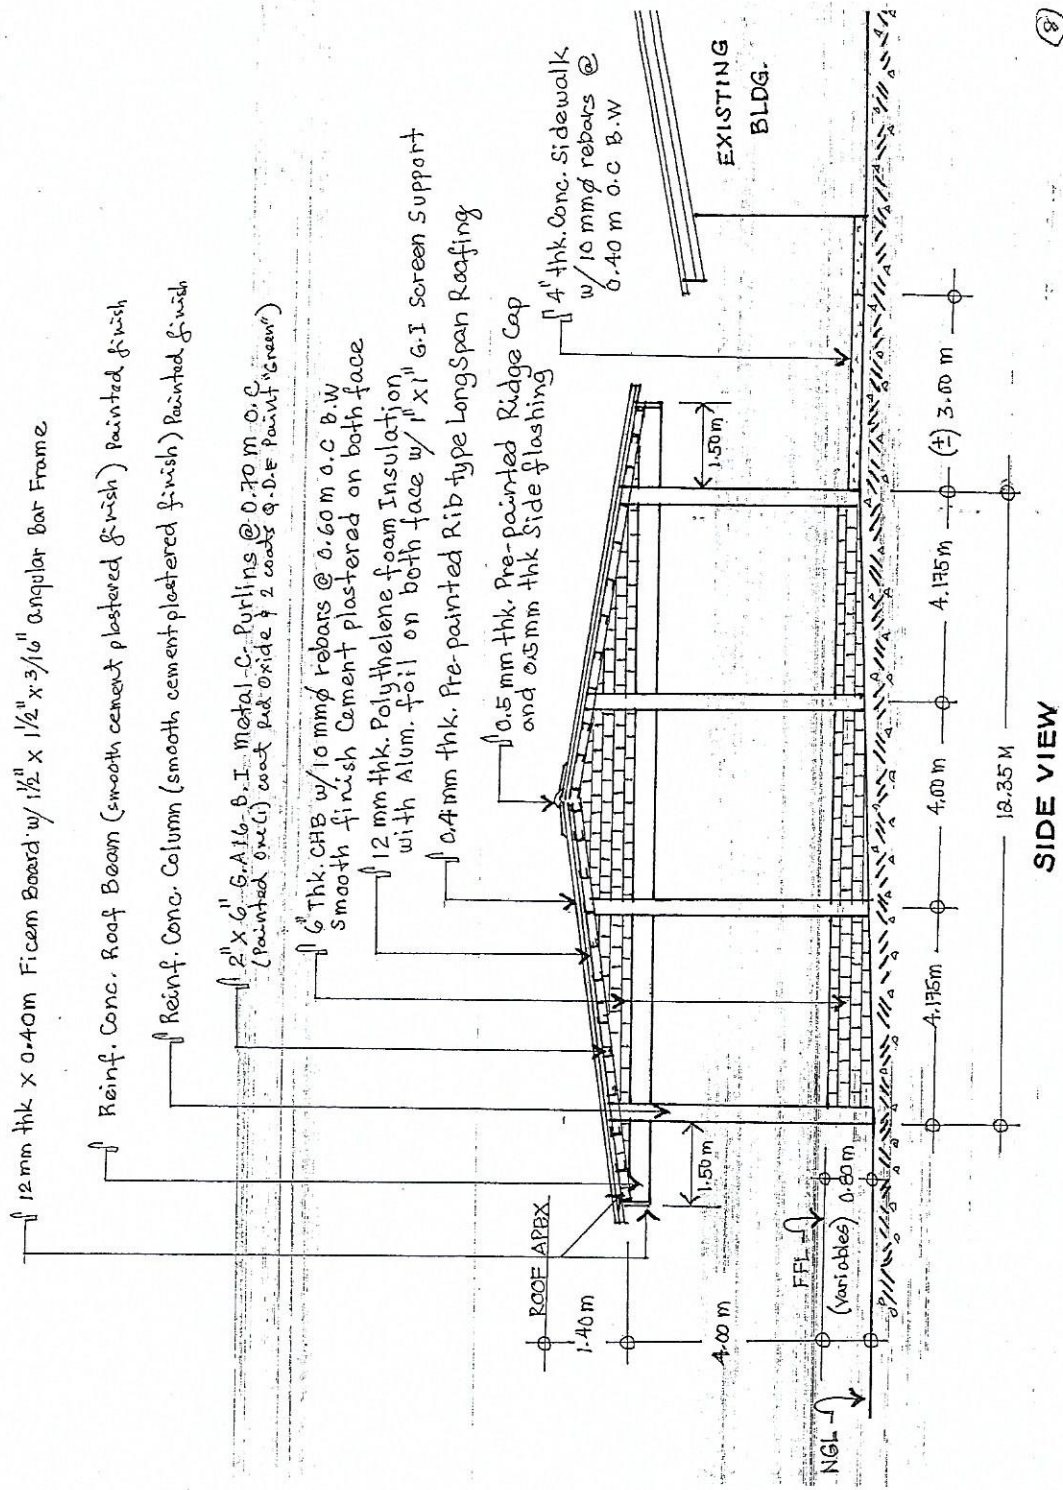 12mm thk x 0.40m Ficem Board w/ 1½" x 1½" x 3/16" angular Bar Frame
Reinf. Conc. Roof Beam (smooth cement plastered finish) Painted finish
Reinf. Conc. Column (smooth cement plastered finish) Painted finish
2" x 6" G.A16-B.I metal-C-Purlins @ 0.70 m O.C
(Painted one(1) coat Red Oxide & 2 coats Q.D.E Paint "Green")
6" Thk. CHB w/ 10 mmø rebars @ 0.60 m O.C B.W
smooth finish Cement plastered on both face
12 mm thk. Polythelene foam Insulation
with Alum. foil on both face w/ 1" x 1" G.I Screen Support
0.4 mm thk. Pre-painted Rib type LongSpan Roofing
0.5 mm thk. Pre-painted Ridge Cap
and 0.5mm thk Side flashing
4" thk. Conc. Sidewalk
w/ 10 mmø rebars @
0.40 m O.C B.W
EXISTING
BLDG.
ROOF APEX
1.40m
4.00 m
FFL
(variables) 0.80m
NGL
1.50m
1.50m
4.175m
4.00 m
4.175m
(±) 3.00 m
12.35 M
SIDE VIEW
8